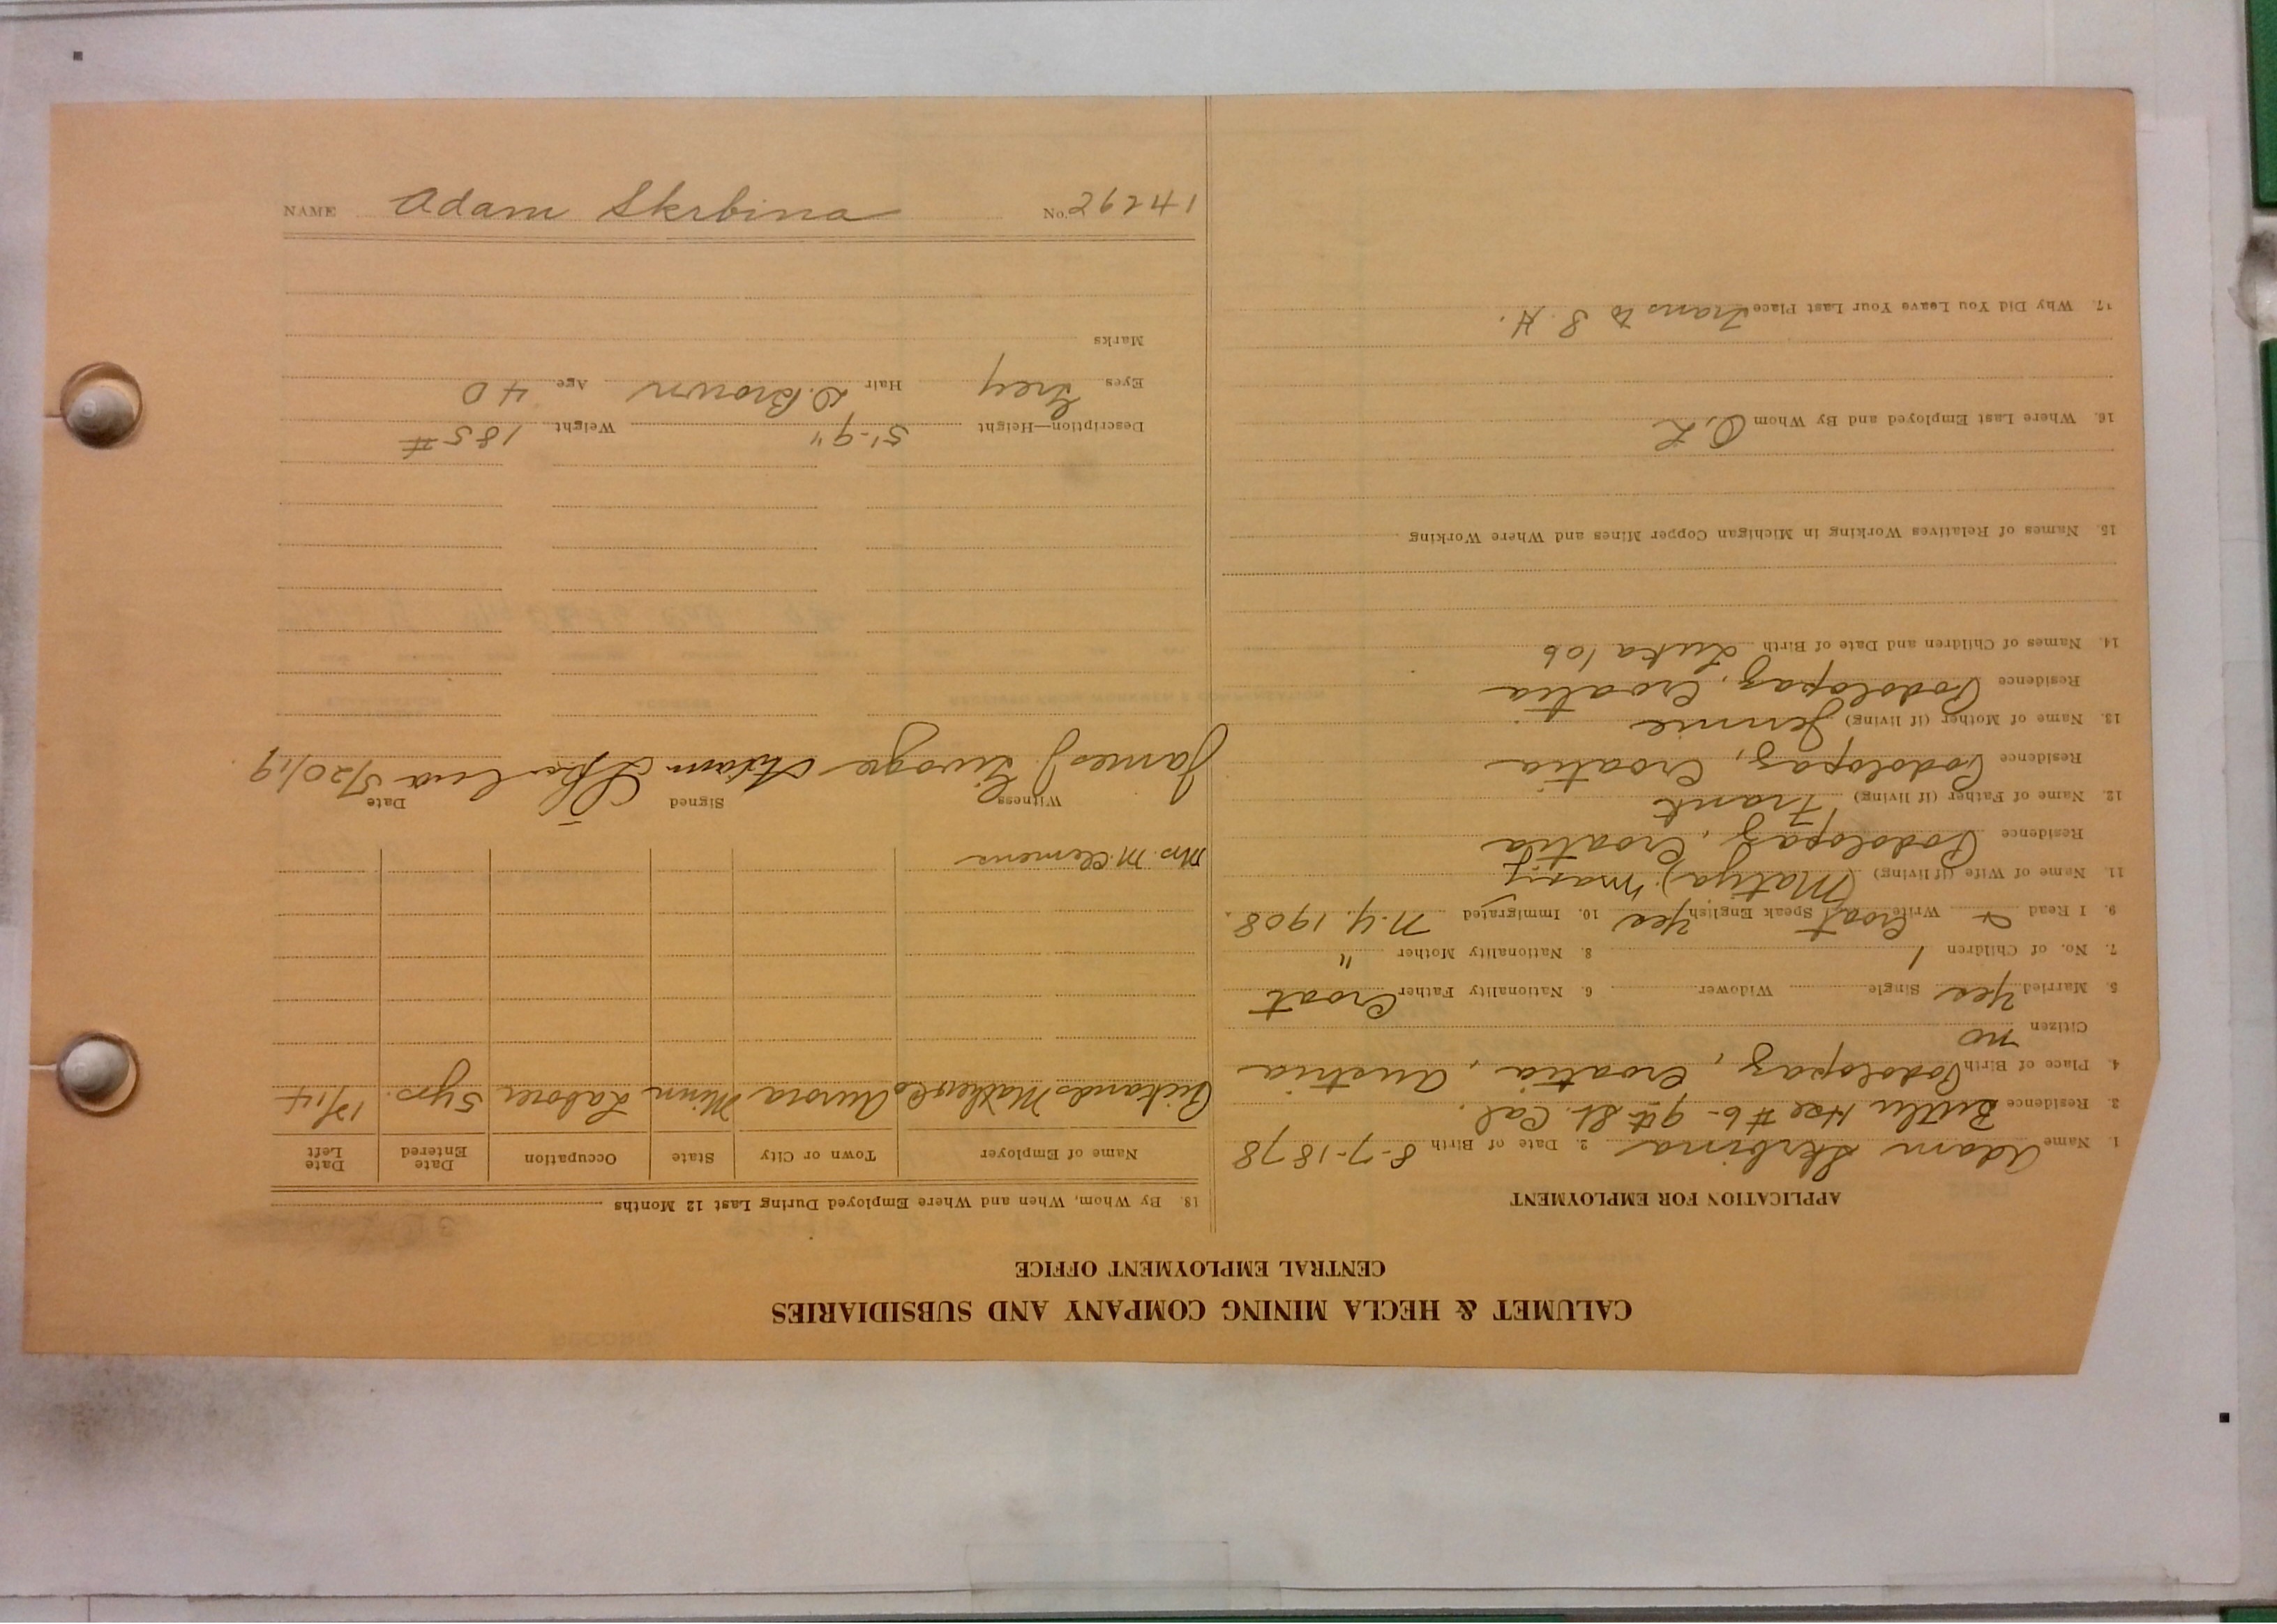 CALUMET & HECLA MINING COMPANY AND SUBSIDIARIES
CENTRAL EMPLOYMENT OFFICE
APPLICATION FOR EMPLOYMENT
1. Name Adam Skrbina 2. Date of Birth 8-7-1878
3. Residence Butler Hse #6-9th St. Cal.
4. Place of Birth Podolopaz, Croatia, Austria
Citizen no
5. Married Yes Single Widower 6. Nationality Father Croat
7. No. of Children 1 8. Nationality Mother "
9. I Read & Write Croat Speak English Yes 10. Immigrated N.Y. 1908
11. Name of Wife (if living) (Matija) "Mary"
Residence Podolopaz, Croatia
12. Name of Father (if living) Frank
Residence Podolopaz, Croatia
13. Name of Mother (if living) Jennie
Residence Podolopaz, Croatia
14. Names of Children and Date of Birth Luka 10b
15. Names of Relatives Working in Michigan Copper Mines and Where Working
16. Where Last Employed and By Whom O.L
17. Why Did You Leave Your Last Place Trans to S. H.
18. By Whom, When and Where Employed During Last 12 Months
Name of Employer Town or City State Occupation Date Entered Date Left
Pickands Mather Co Aurora Minn Laborer 5 yrs. 12/14
Mrs. M. Clemens
Witness Signed Date
James J. Adam Skrbina 5/20/19
Description—Height 5'-9" Weight 185 #
Eyes Grey Hair D. Brown Age 40
Marks
NAME Adam Skrbina No. 26241